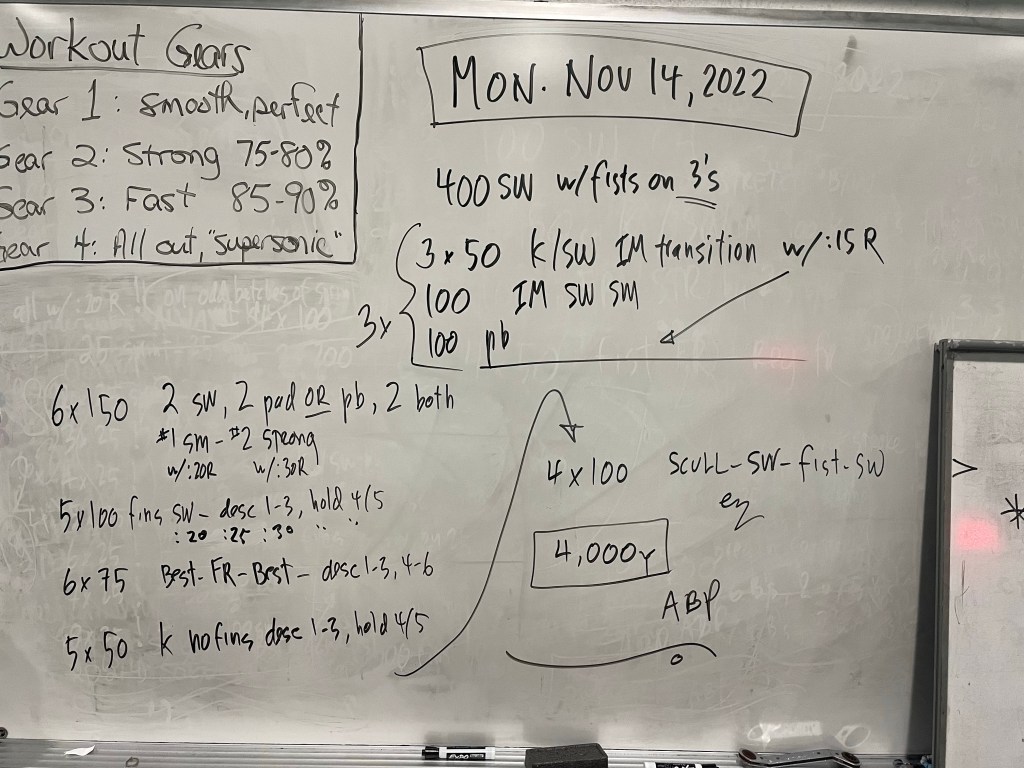 Workout Gears
Gear 1: smooth, perfect
Gear 2: Strong 75-80%
Gear 3: Fast 85-90%
Gear 4: All out, "supersonic"
MON. NOV 14, 2022
400 SW w/fists on 3's
3x
3x50 K/SW IM transition w/:15R
100 IM SW SM
100 pb
6x150 2 sw, 2 pad OR pb, 2 both
#1 sm - #2 strong
w/:20R w/:30R
5x100 fins SW - desc 1-3, hold 4/5
:20 :25 :30 " "
6x75 Best-FR-Best - desc 1-3, 4-6
5x50 K no fins desc 1-3, hold 4/5
4x100 SCULL-SW-fist-SW
ez
4,000Y
ABP
>
*